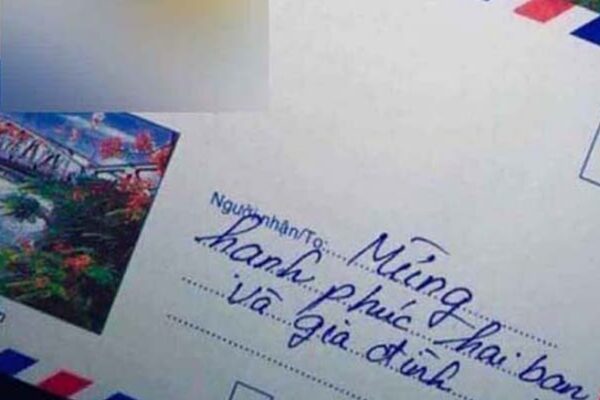 Người nhận/To: Mừng
hạnh phúc hai bạn
và gia đình